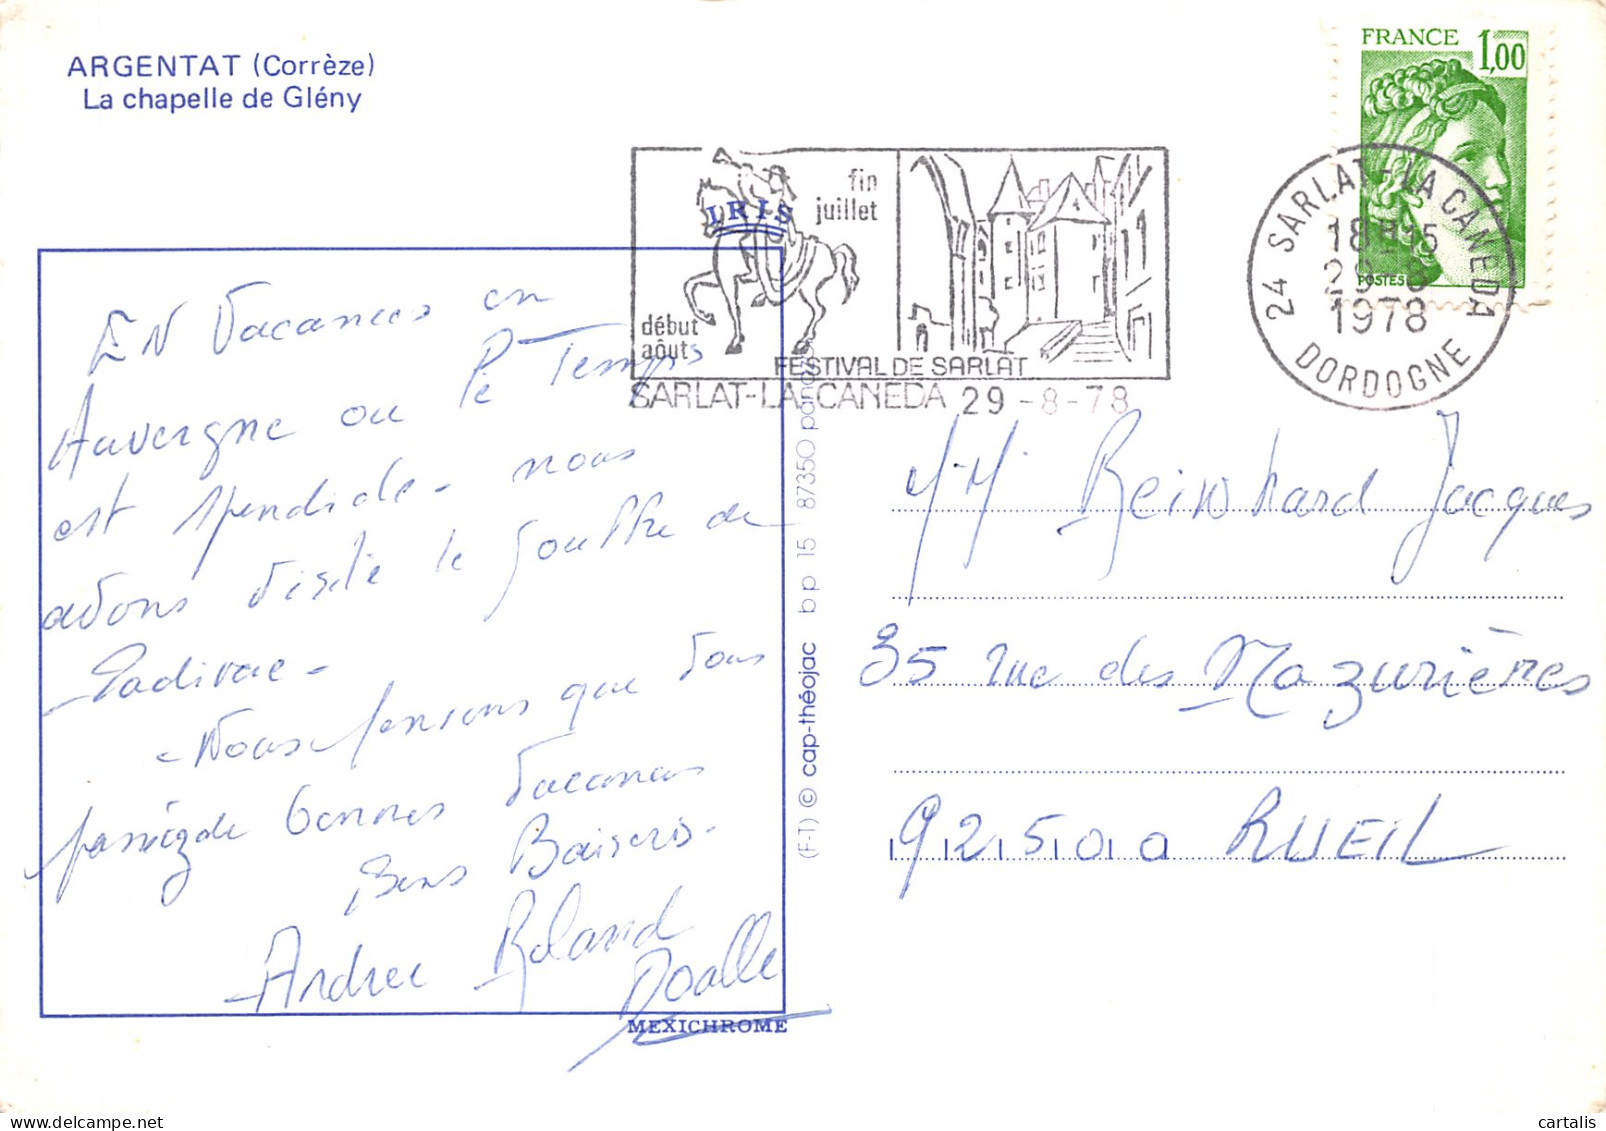 ARGENTAT (Corrèze)
La chapelle de Glény
FRANCE 1,00
POSTES
24 SARLAT-LA CANEDA
18H15
29-8
1978
DORDOGNE
fin
juillet
IRIS
début
aôut
FESTIVAL DE SARLAT
SARLAT-LA CANEDA 29-8-78
EN Vacances en
Auvergne ou le Temps
est spendide - nous
avons visité le gouffre de
Padirac -
- Nous pensons que vous
passiez de bonnes vacances
Bons Baisers.
Andree Roland
MEXICHROME
(F-T) © cap-théojac bp 15 87350 panazol
M.M Reinhard Jacques
35 rue des Mazurières
92500 RUEIL
cartalis